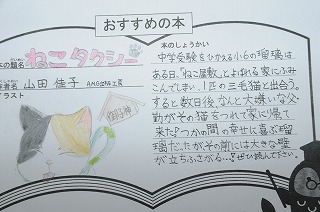 おすすめの本
本の題名
ねこタクシー
著者名 山田 佳子
イラスト
本のしょうかい
中学受験をひかえる小6の瑠璃は
ある日、「ねこ屋敷」とよばれる家にふみ
こんでしまい、1匹の三毛猫と出会う。
すると数日後なんと大嫌いな父
親がその猫をつれて家に帰って
来た!つかの間の幸せに喜ぶ瑠
璃だったがその前には大きな壁
が立ちふさがる…!ぜひ読んで下さい。